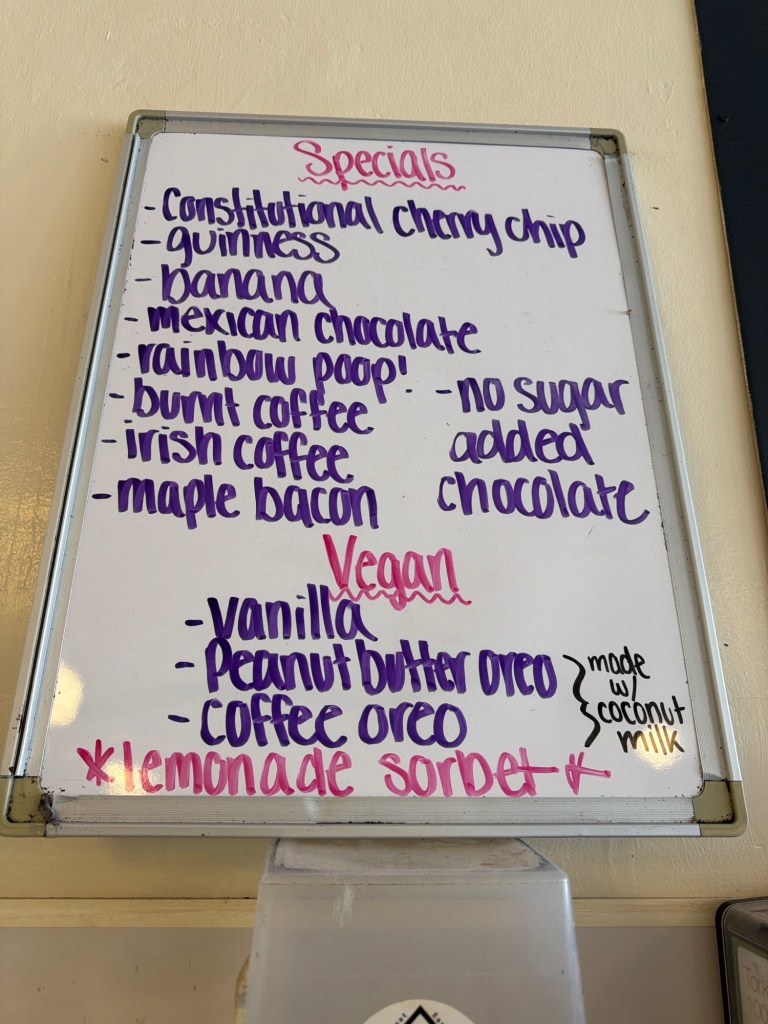 Specials
- Constitutional cherry chip
- guinness
- banana
- mexican chocolate
- rainbow poop!
- burnt coffee
- irish coffee
- maple bacon
- no sugar
added
chocolate
Vegan
- vanilla
- Peanut butter oreo
- coffee oreo
made
w/
coconut
milk
*lemonade sorbet*